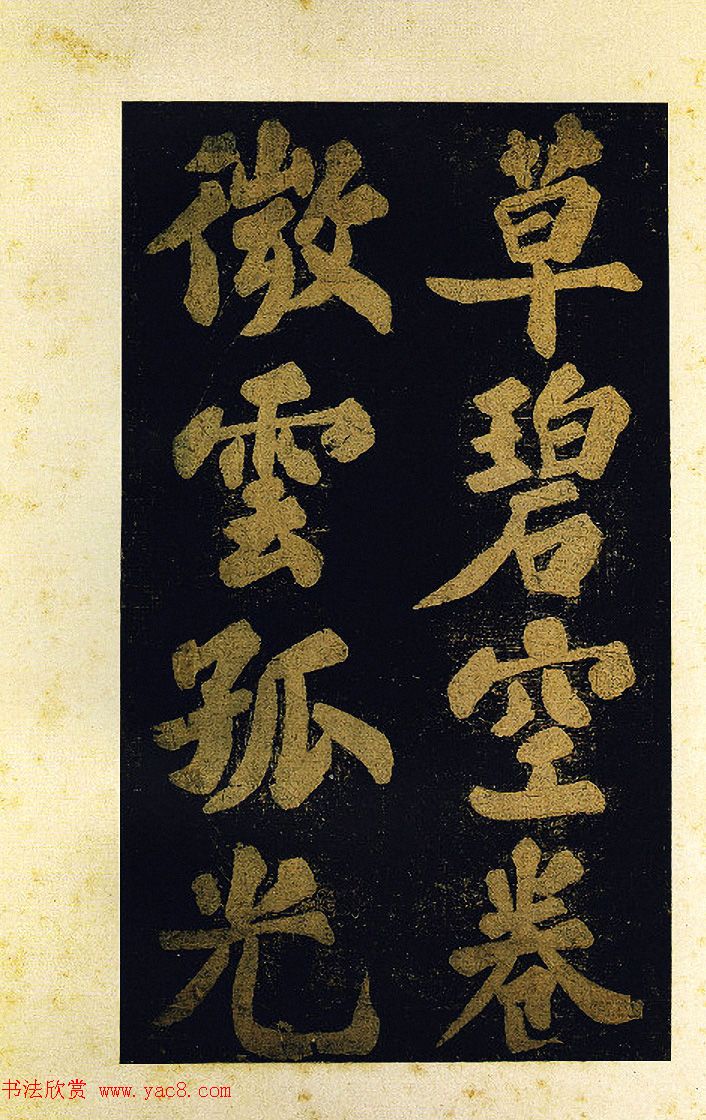 草碧空卷
微雲孤光
书法欣赏 www.yac8.com